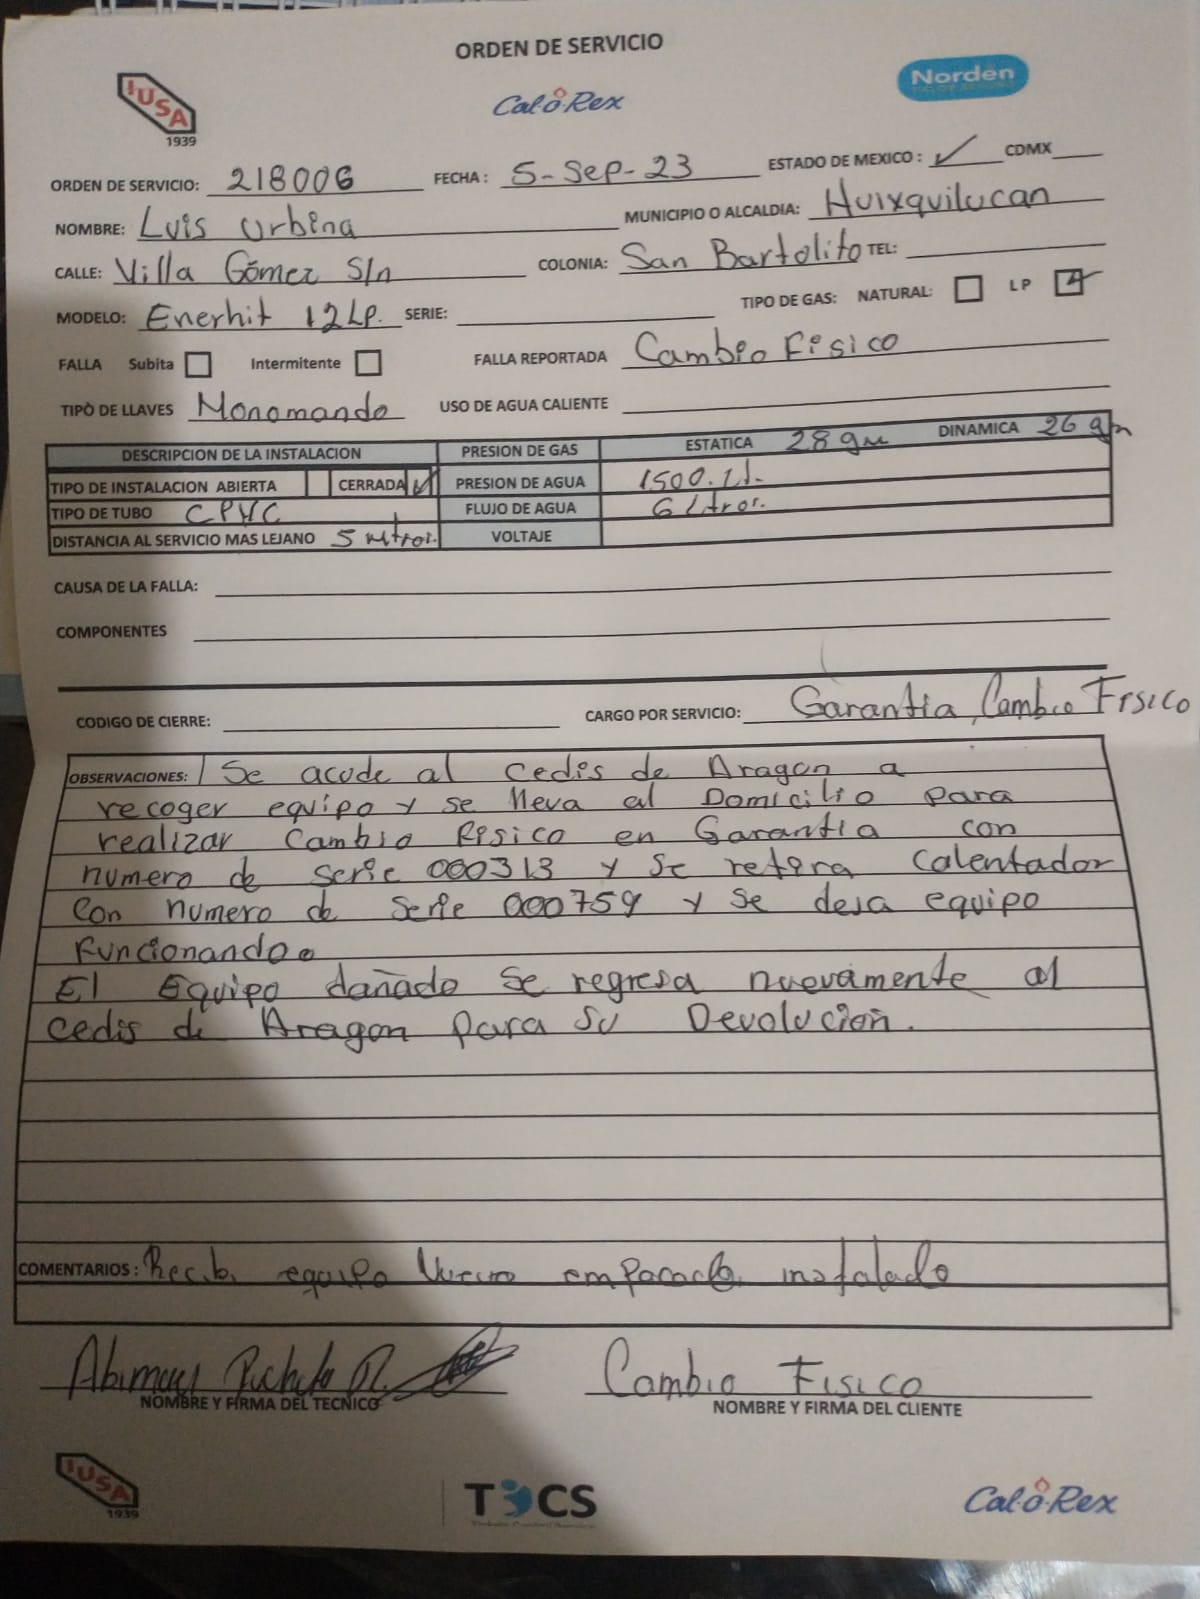 ORDEN DE SERVICIO
IUSA
1939
Cal-o-Rex
Norden
ORDEN DE SERVICIO: 218006 FECHA: 5-Sep-23 ESTADO DE MEXICO: ✓ CDMX
NOMBRE: Luis Urbina MUNICIPIO O ALCALDIA: Huixquilucan
CALLE: Villa Gómez S/n COLONIA: San Bartolito TEL:
MODELO: Enerhit 12 Lp. SERIE: TIPO DE GAS: NATURAL: LP
FALLA Subita Intermitente FALLA REPORTADA Cambio Fisico
TIPÒ DE LLAVES Monomando USO DE AGUA CALIENTE
DESCRIPCION DE LA INSTALACION PRESION DE GAS ESTATICA 28 gm DINAMICA 26 gm
TIPO DE INSTALACION ABIERTA CERRADA ✓ PRESION DE AGUA 1500. Lt.
TIPO DE TUBO CPVC FLUJO DE AGUA 6 Litros.
DISTANCIA AL SERVICIO MAS LEJANO 5 mtros. VOLTAJE
CAUSA DE LA FALLA:
COMPONENTES
CODIGO DE CIERRE: CARGO POR SERVICIO: Garantia, Cambio Fisico
OBSERVACIONES: Se acude al cedis de Aragon a
recoger equipo y se lleva al Domicilio para
realizar Cambio Fisico en Garantia con
numero de serie 000313 y se retira Calentador
Con numero de serie 000759 y se deja equipo
Funcionando.
El Equipo dañado se regresa nuevamente al
cedis de Aragon para su Devolucion.
COMENTARIOS: Recibi equipo Nuevo empacado instalado
NOMBRE Y FIRMA DEL TECNICO
Cambio Fisico
NOMBRE Y FIRMA DEL CLIENTE
IUSA
1939
TCS
Cal-o-Rex